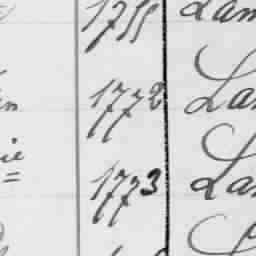 1755 Lam
in 1772 La
ie 1773 La